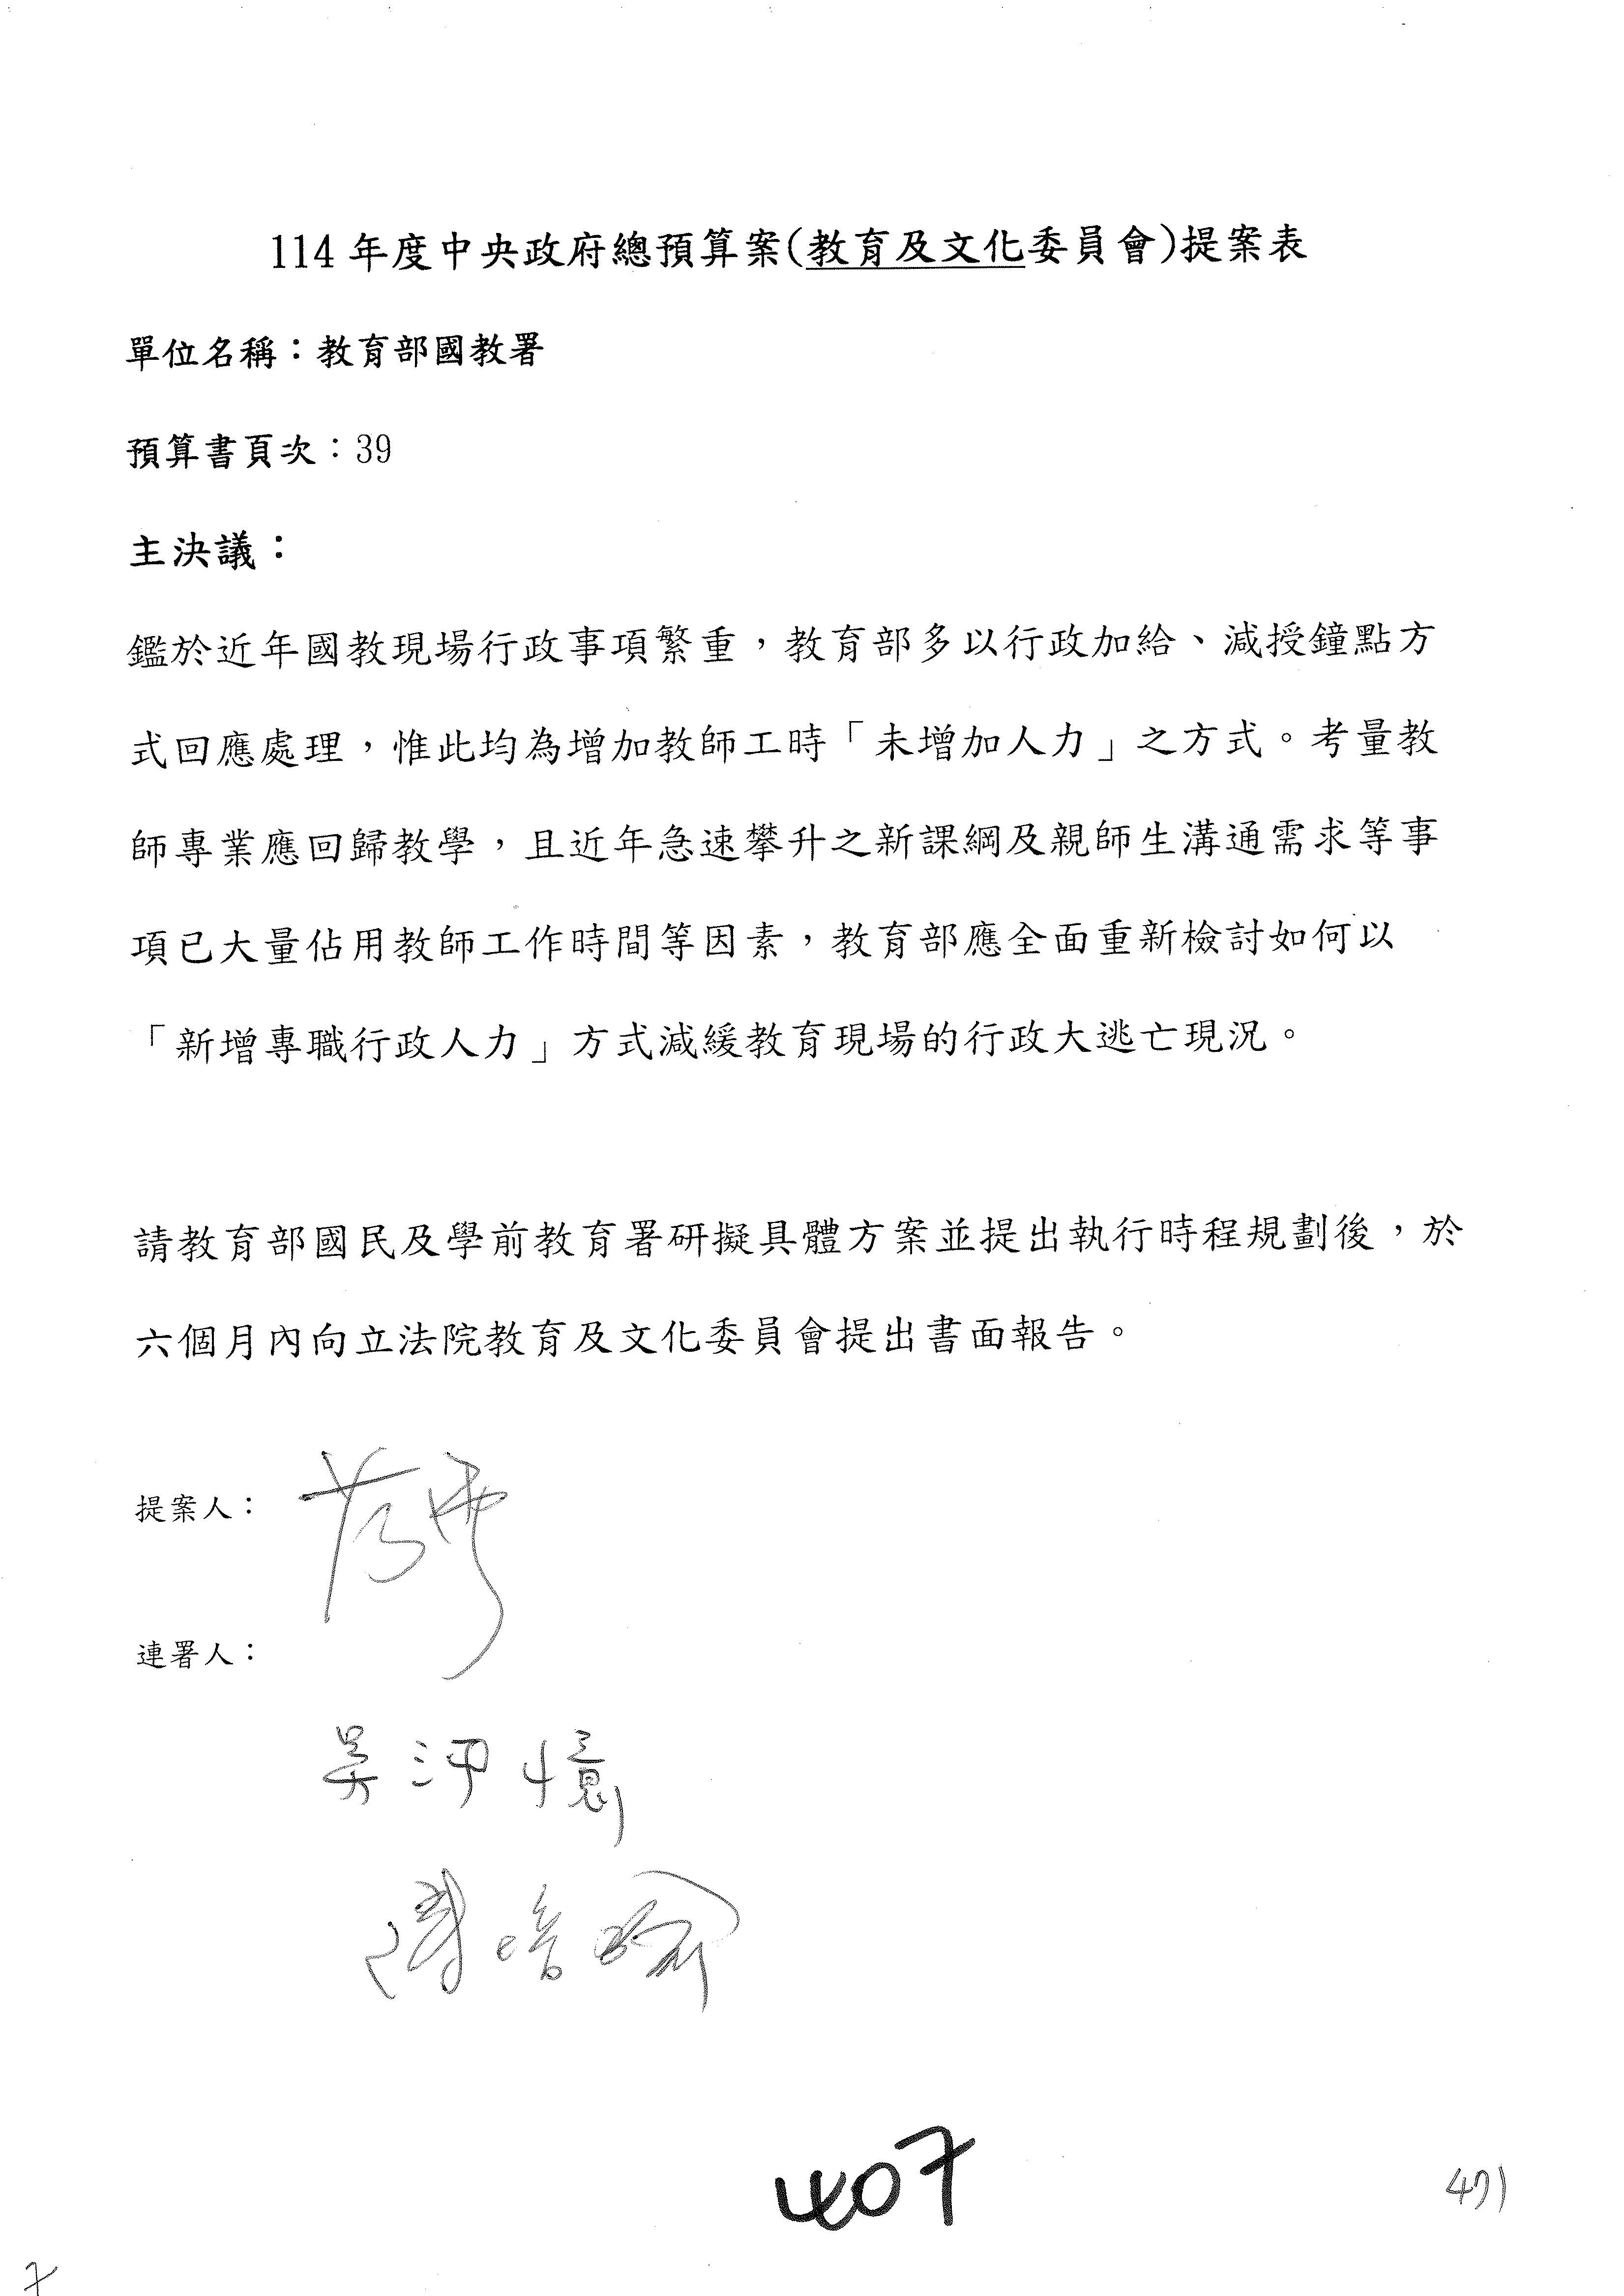 114年度中央政府總預算案(教育及文化委員會)提案表
單位名稱：教育部國教署
預算書頁次：39
主決議：
鑑於近年國教現場行政事項繁重，教育部多以行政加給、減授鐘點方
式回應處理，惟此均為增加教師工時「未增加人力」之方式。考量教
師專業應回歸教學，且近年急速攀升之新課綱及親師生溝通需求等事
項已大量佔用教師工作時間等因素，教育部應全面重新檢討如何以
「新增專職行政人力」方式減緩教育現場的行政大逃亡現況。
請教育部國民及學前教育署研擬具體方案並提出執行時程規劃後，於
六個月內向立法院教育及文化委員會提出書面報告。
提案人：
連署人：
吳沛憶
陳培瑜
407
471
7